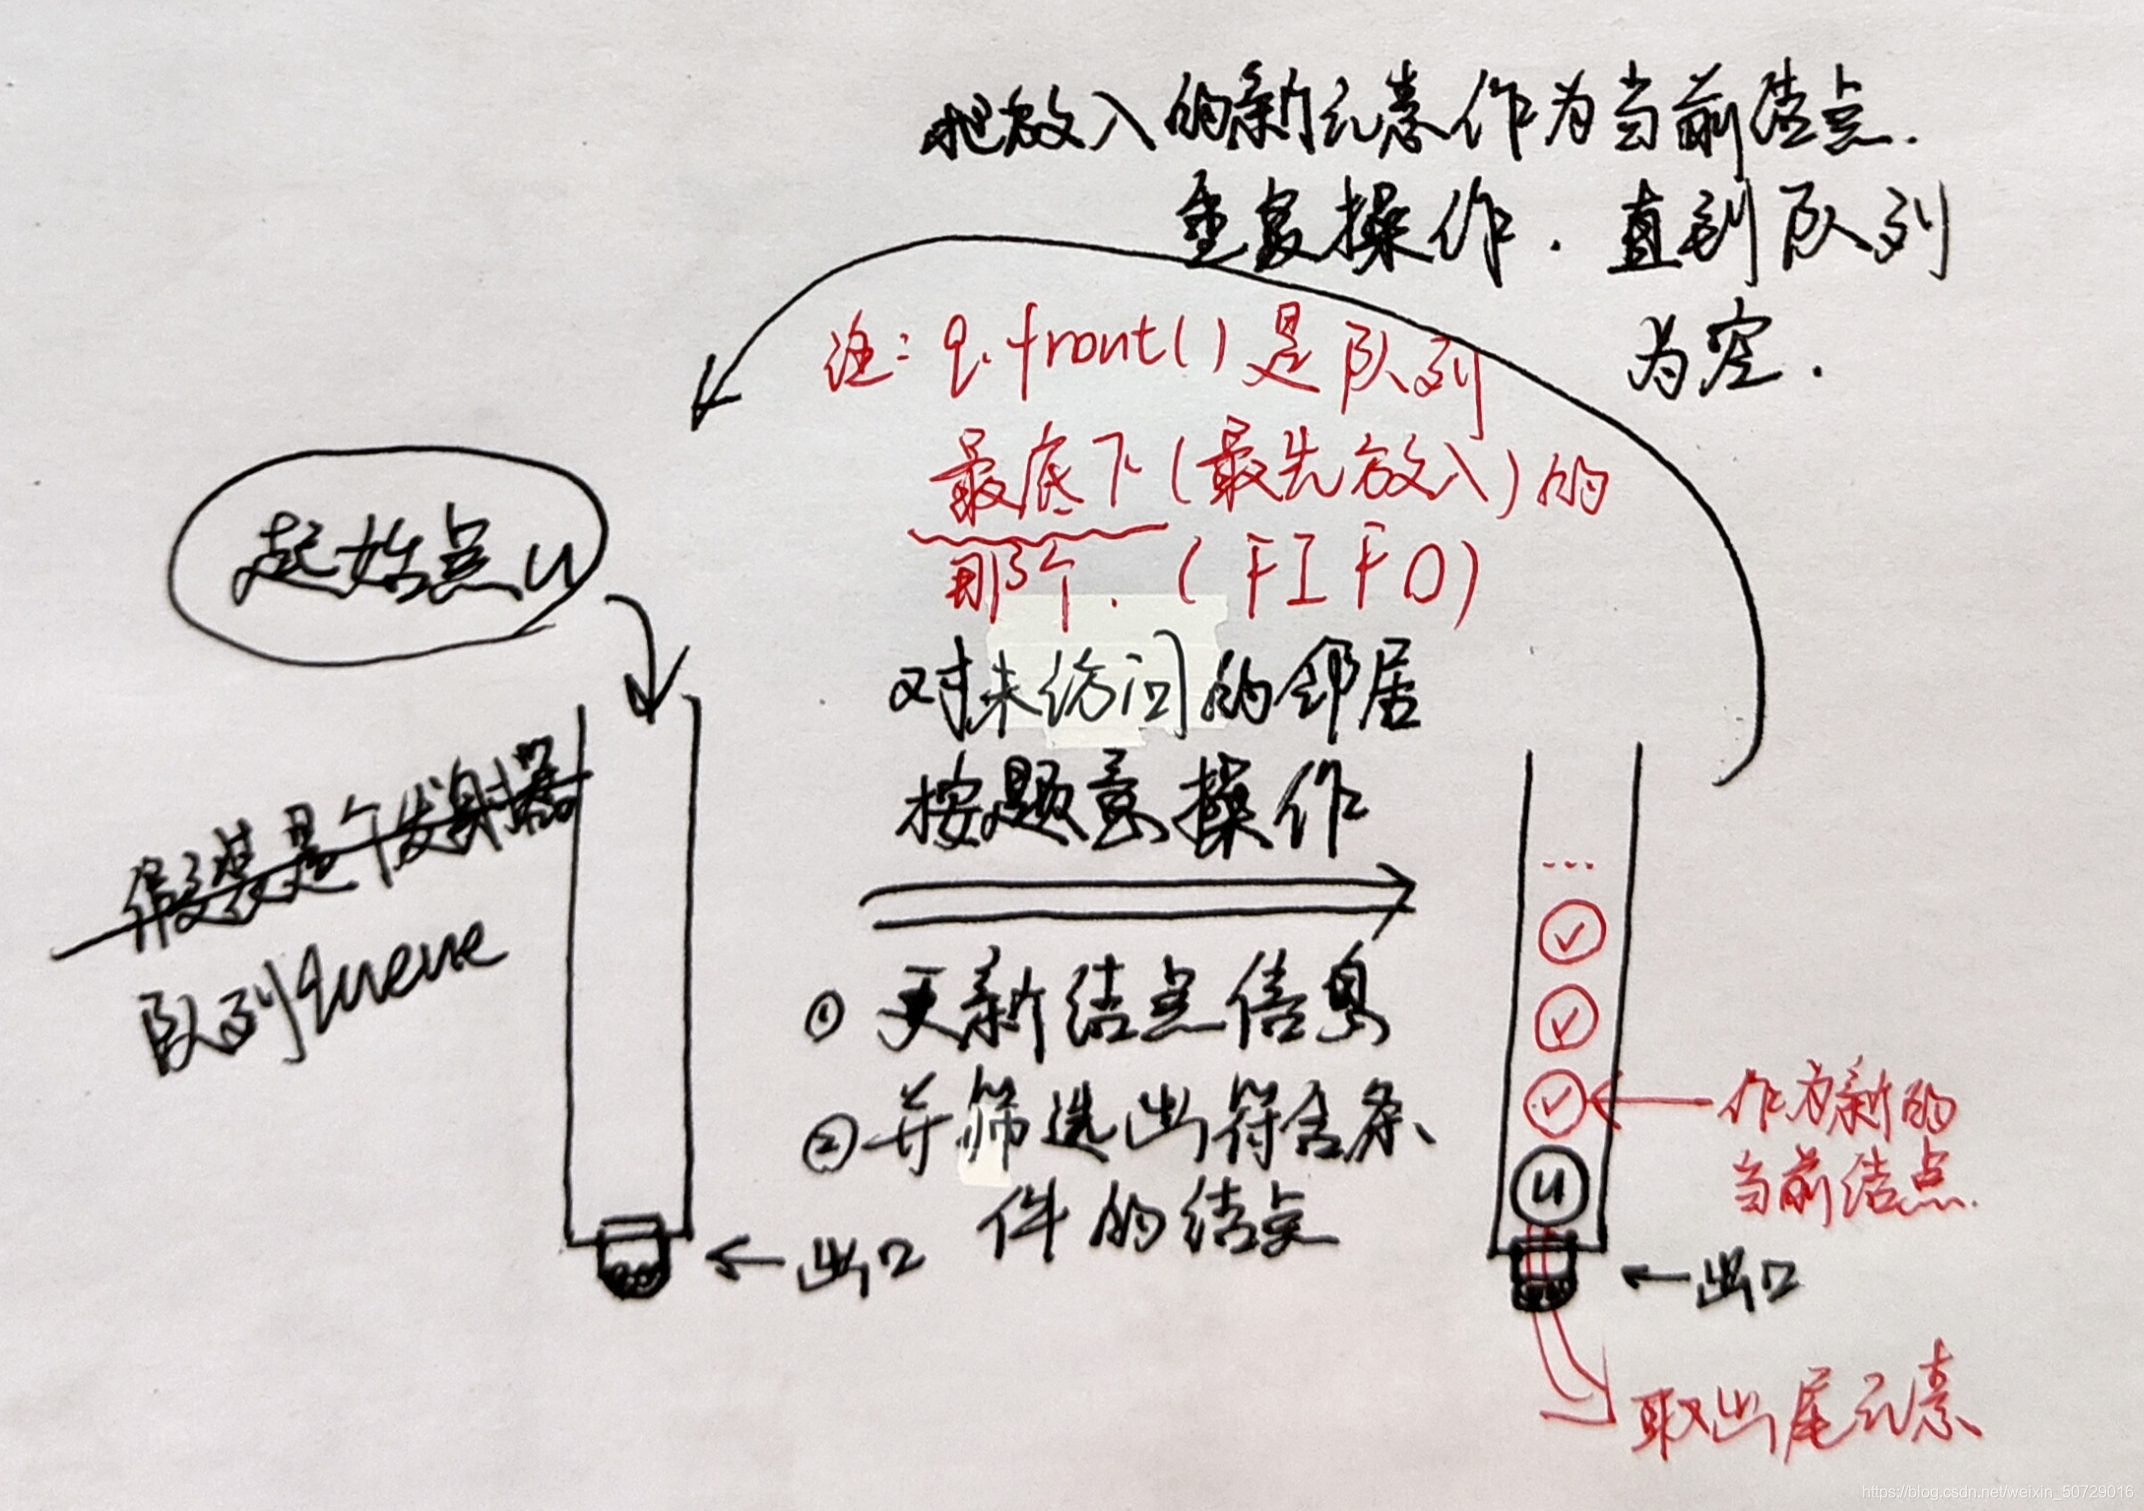 把放入的新元素作为当前结点.
重复操作. 直到队列
为空.
注: q.front()是队列
最底下(最先放入)的
那个. (FIFO)
起始点u
对未访问的邻居
按题意操作
假装是个发射器
队列queue
① 更新结点信息
② 并筛选出符合条
件的结点
← 出口
...
✓
✓
✓
u
作为新的
当前结点.
← 出口
取出尾元素
https://blog.csdn.net/weixin_50729016